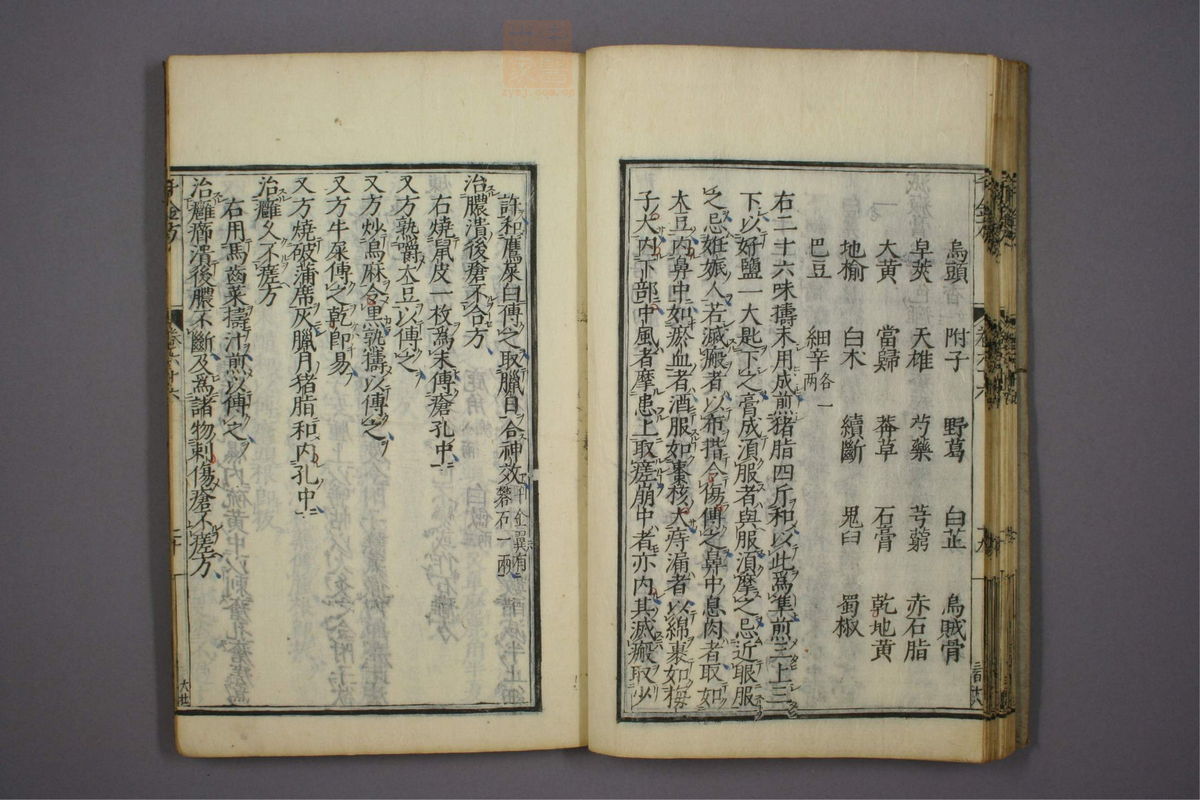 烏頭 附子 野葛 白芷 烏賊骨
皁莢 天雄 芍藥 芎藭 赤石脂
大黃 當歸 莽草 石膏 乾地黃
地榆 白朮 續斷 鬼臼 蜀椒
巴豆 細辛各一兩
右二十六味擣末用成煎豬脂四斤和以此爲準煎三上三
下以好鹽一大匙下之膏成須服者與服須摩之忌近眼服
之忌姙娠人若滅瘢者以布揩令傷傅之鼻中息肉者取如
大豆内鼻中如瘀血者酒服如棗核大痔漏者以綿裹如梅
子大内下部中風者摩患上取瘥崩中者亦内其滅瘢取少
許和鷹屎白傅之取臘日合神效千金翼有礬石一兩
治膿潰後瘡不合方
右燒鼠皮一枚爲末傅瘡孔中
又方熟嚼大豆以傅之
又方炒烏麻令黑熟擣以傅之
又方牛屎傅之乾即易
又方燒破蒲席灰臘月豬脂和内孔中
治癰久不瘥方
右用馬齒菜擣汁煎以傅之
治癰癤潰後膿不斷及爲諸物刺傷瘡不瘥方